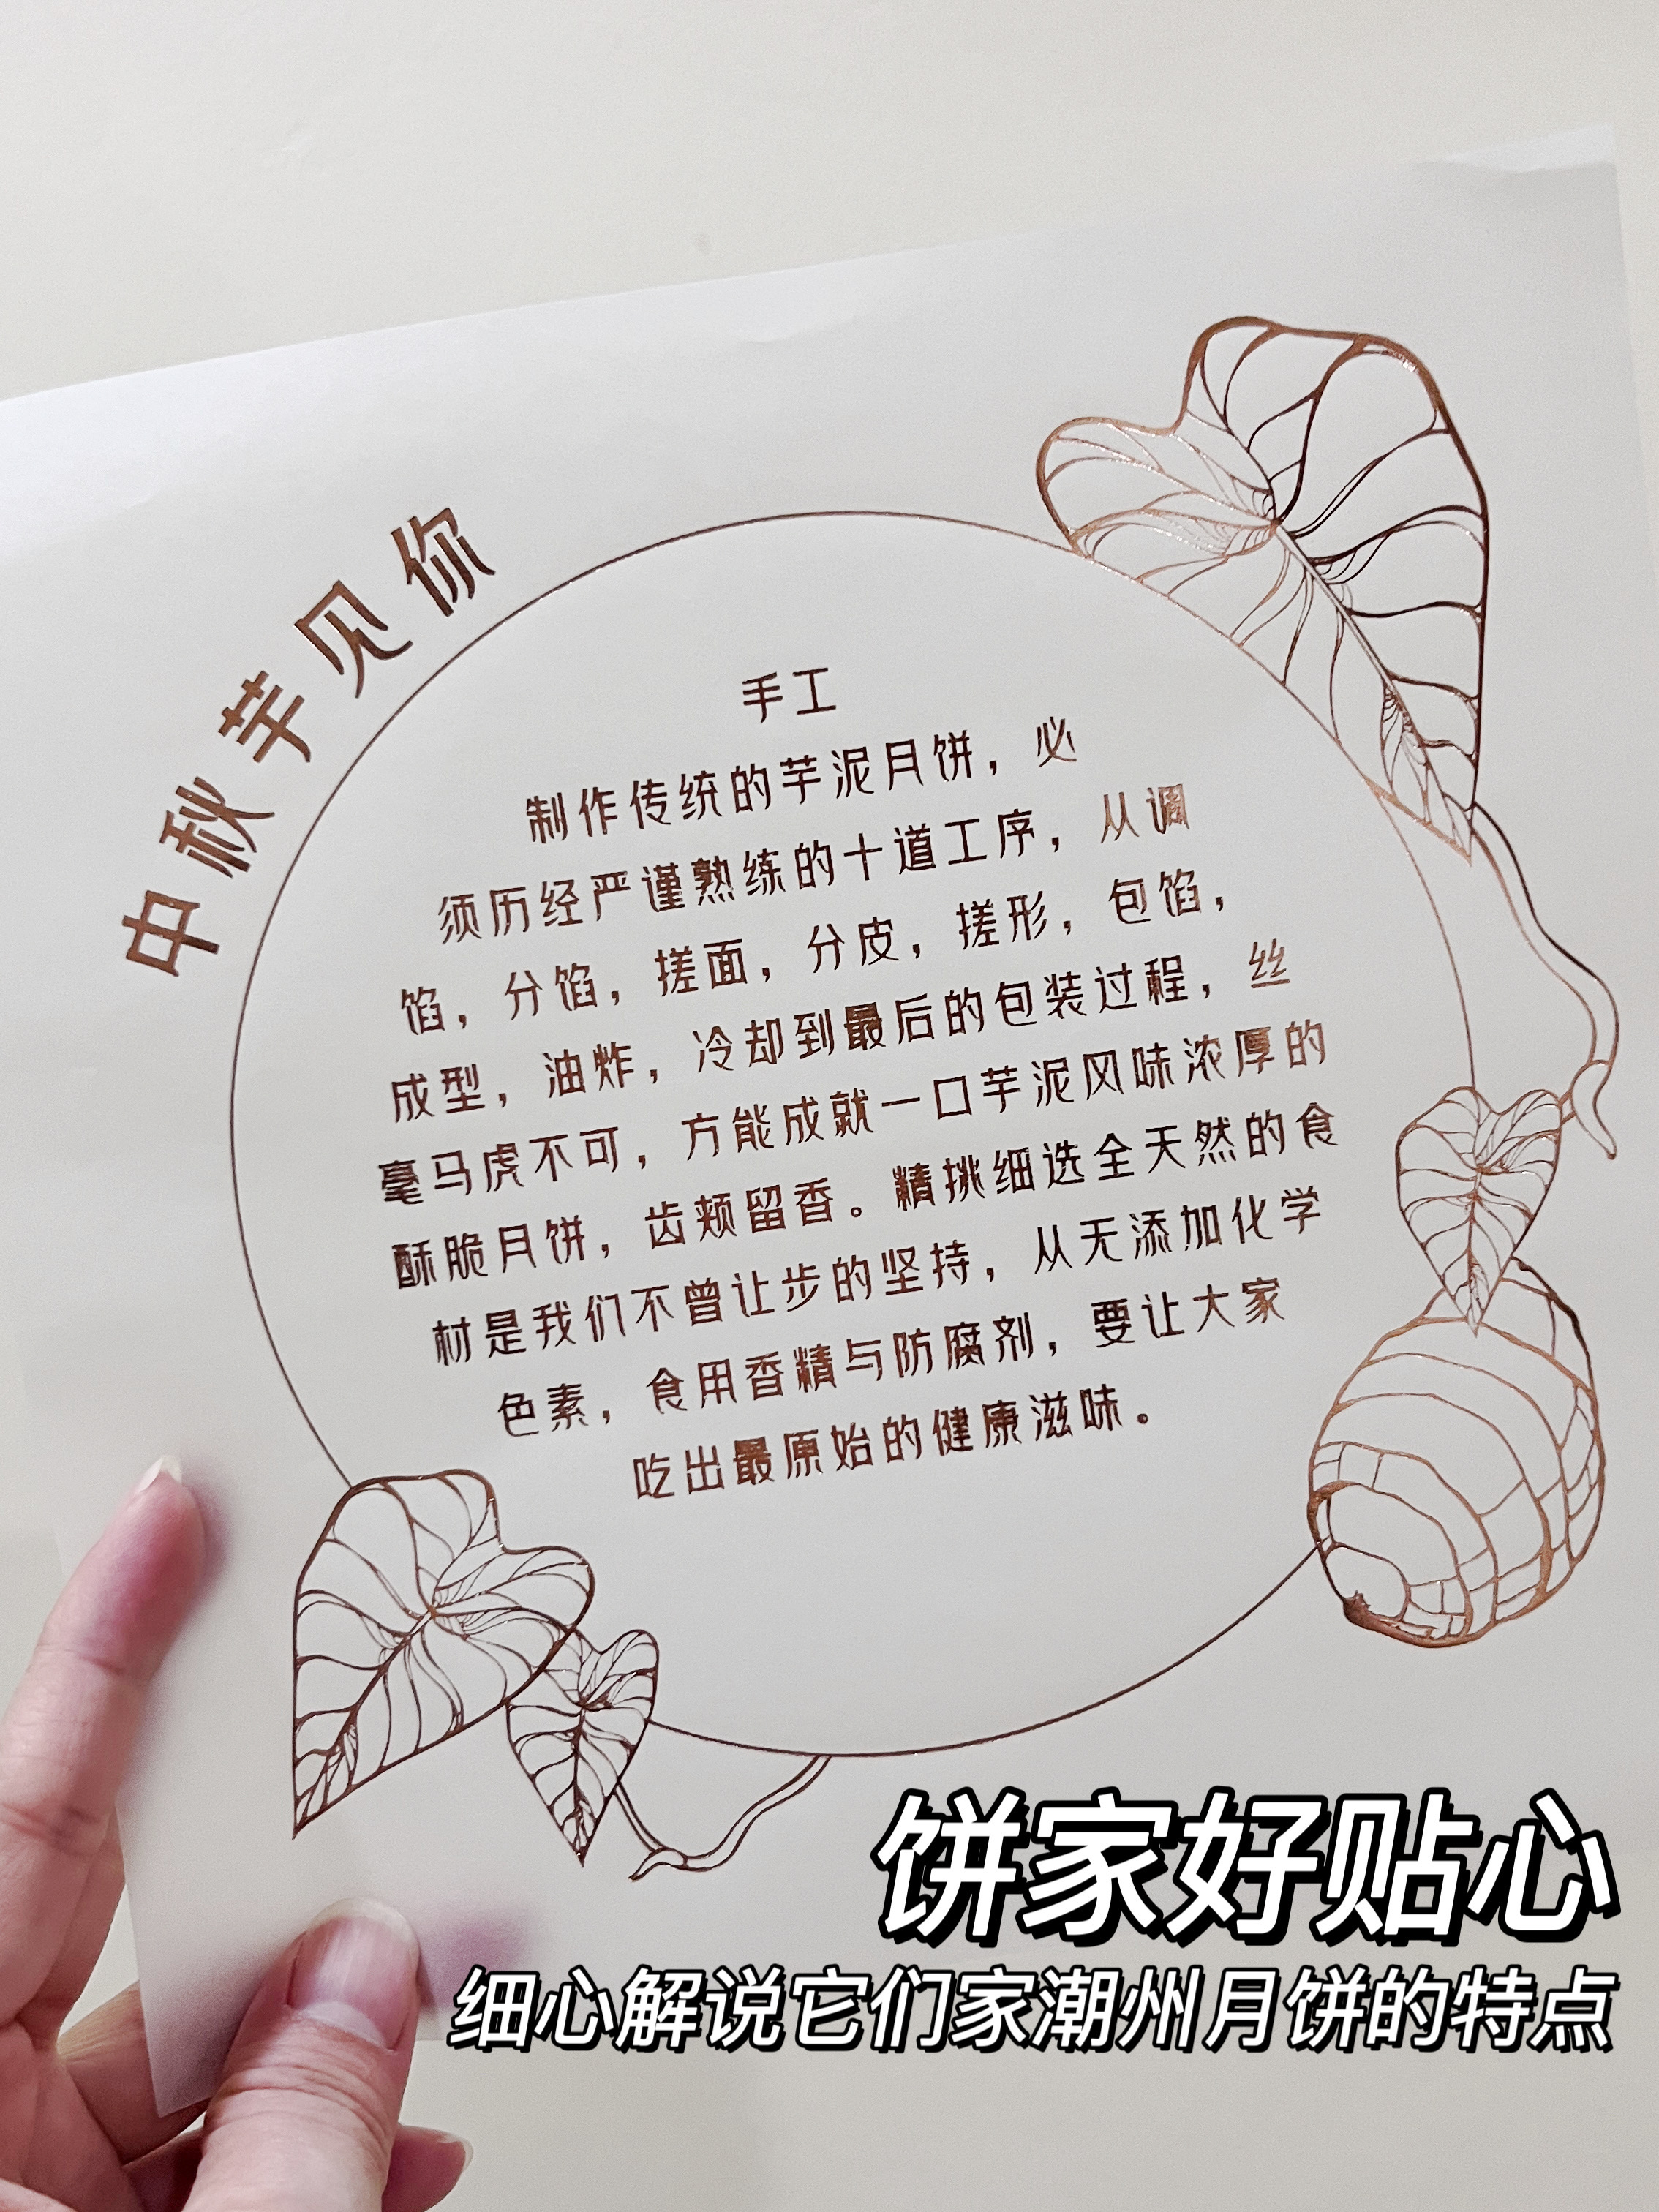 中秋芋见你
手工
制作传统的芋泥月饼，必
须历经严谨熟练的十道工序，从调
馅，分馅，搓面，分皮，搓形，包馅，
成型，油炸，冷却到最后的包装过程，丝
毫马虎不可，方能成就一口芋泥风味浓厚的
酥脆月饼，齿颊留香。精挑细选全天然的食
材是我们不曾让步的坚持，从无添加化学
色素，食用香精与防腐剂，要让大家
吃出最原始的健康滋味。
饼家好贴心
细心解说它们家潮州月饼的特点